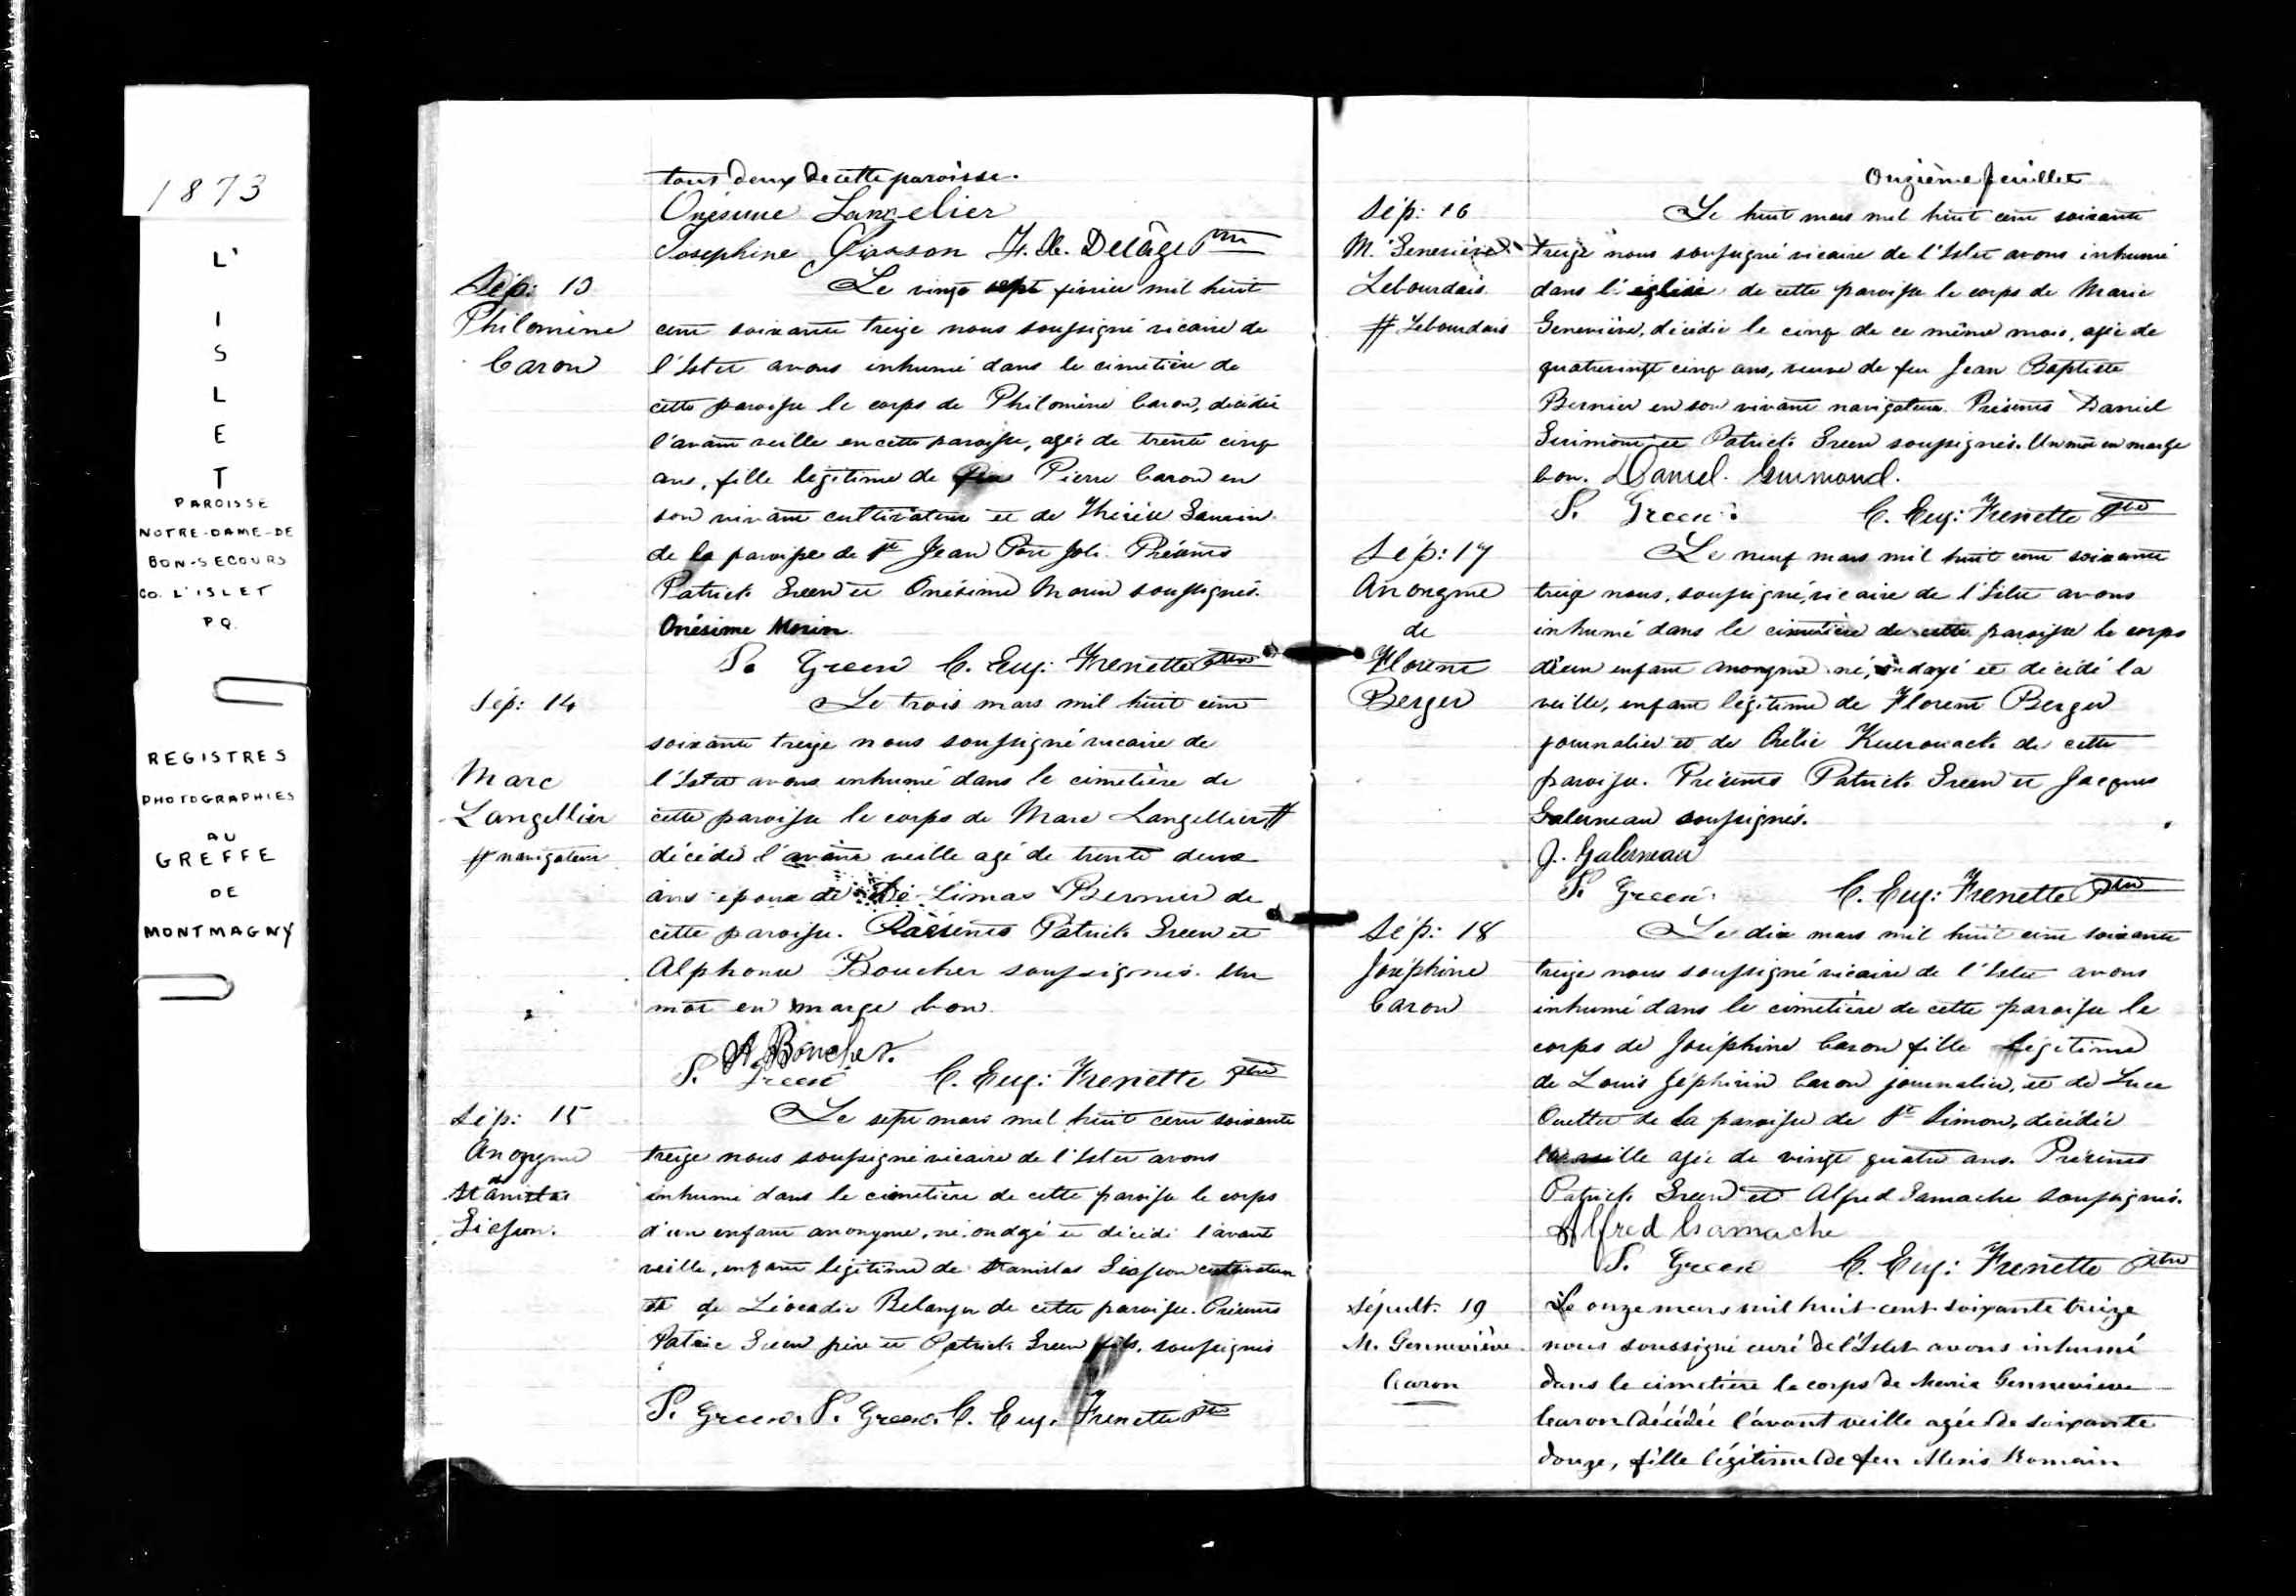 1873
L'
I
S
L
E
T
PAROISSE
NOTRE-DAME-DE
BON-SECOURS
CO. L'ISLET
P.Q.
REGISTRES
PHOTOGRAPHIES
AU
GREFFE
DE
MONTMAGNY
tous deux de cette paroisse.
Onésime Langelier
Josephine Giasson F. X. Delâge Ptre
Sép: 13
Philomène
Caron
Le vingt sept février mil huit
cent soixante treize nous soussigné vicaire de
l'Islet avons inhumé dans le cimetière de
cette paroisse le corps de Philomène Caron, décédée
l'avant veille en cette paroisse, agée de trente cinq
ans, fille légitime de feu Pierre Caron en
son vivant cultivateur et de Thérèse
de la paroisse de St Jean Port Joli. Présents
Patrick Green et Onésime Morin soussignés.
Onésime Morin.
P. Green C. Eug: Frenette Ptre
Sép: 14
Marc
Langellier
# navigateur
Le trois mars mil huit cent
soixante treize nous soussigné vicaire de
l'Islet avons inhumé dans le cimetière de
cette paroisse le corps de Marc Langellier #
décédé l'avant veille agé de trente deux
ans époux de Dé Limas Bernier de
cette paroisse. Présents Patrick Green et
Alphonse Boucher soussignés. Un
mot en marge bon.
A. Boucher.
P. Green C. Eug: Frenette Ptre
Sép: 15
Anonyme
Stanislas
Giasson.
Le sept mars mil huit cent soixante
treize nous soussigné vicaire de l'Islet avons
inhumé dans le cimetière de cette paroisse le corps
d'un enfant anonyme, né, ondoyé et décédé l'avant
veille, enfant légitime de Stanislas Giasson cultivateur
et de Léocadie Belanger de cette paroisse. Présents
Patric Green père et Patrick Green fils, soussignés
P. Green. P. Green. C. Eug. Frenette Ptre
Onzième feuillet
Sép: 16
M. Geneviève
Lebourdais.
# Lebourdais
Le huit mars mil huit cent soixante
treize nous soussigné vicaire de l'Islet avons inhumé
dans l'église de cette paroisse le corps de Marie
Geneviève, décédée le cinq de ce même mois, agée de
quatrevingt cinq ans, veuve de feu Jean Baptiste
Bernier en son vivant navigateur. Présents Daniel
et Patrick Green soussignés. Un mot en marge
bon. Daniel Guimond.
P. Green. C. Eug: Frenette Ptre
Sép: 17
Anonyme
de
Florent
Berger
Le neuf mars mil huit cent soixante
treize nous, soussigné, vicaire de l'Islet avons
inhumé dans le cimetière de cette paroisse le corps
d'un enfant anonyme né, ondoyé et décédé la
veille, enfant légitime de Florent Berger
journalier et de Kuerouack de cette
paroisse. Présents Patrick Green et Jacques
Galerneau soussignés.
J. Galerneau
P. Green. C. Eug: Frenette Ptre
Sép: 18
Joséphine
Caron
Le dix mars mil huit cent soixante
treize nous soussigné vicaire de l'Islet avons
inhumé dans le cimetière de cette paroisse le
corps de Joséphine Caron fille légitime
de Louis Zéphirin Caron journalier, et de Luce
Ouellet de la paroisse de St Simon, décédée
la veille agée de vingt quatre ans. Présents
Patrick Green et Alfred Gamache soussignés.
Alfred Gamache
P. Green C. Eug: Frenette Ptre
Sépult: 19
M. Genneviève
Caron
Le onze mars mil huit-cent-soixante treize
nous soussigné curé de l'Islet avons inhumé
dans le cimetière le corps de Marie Genneviève
Caron décédée l'avant veille agée de soixante
douze, fille légitime de feu Alexis Romain